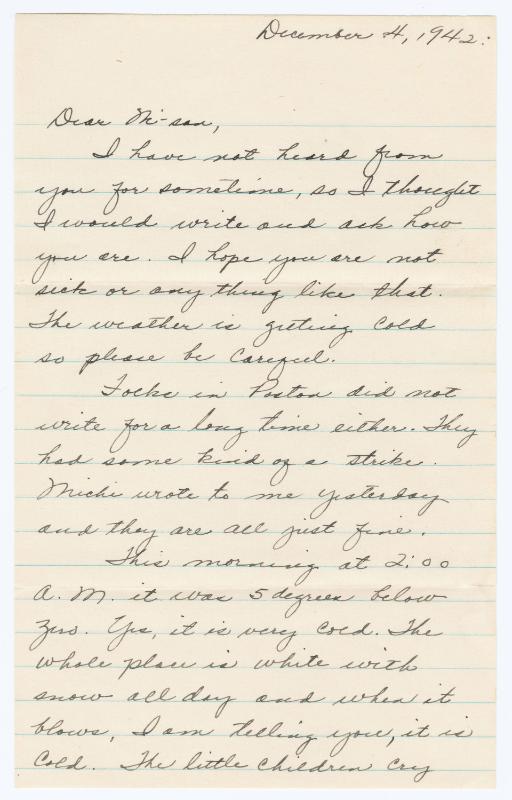 December 4, 1942:
Dear Mi-san,
I have not heard from
you for sometime, so I thought
I would write and ask how
you are. I hope you are not
sick or any thing like that.
The weather is geting cold
so please be careful.
Focks in Poston did not
write for a long time either. They
had some kind of a strike.
Michi wrote to me yesterday
and they are all just fine.
This morning at 2:00
A.M. it was 5 degrees below
zero. Yes, it is very cold. The
whole place is white with
snow all day and when it
blows, I am telling you, it is
cold. The little children cry